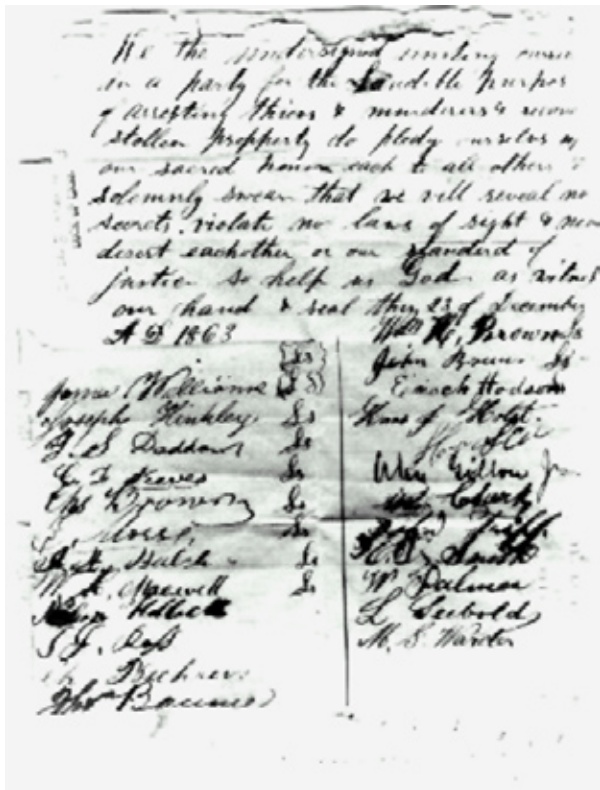 We the undersigned uniting ourse
in a party for the Laudible purpos
of arresting thievs & murderers & recove
stollen propperty do pledg ourselvs
our sacred honor each to all others
solemnly swear that we will reveal no
secrets, violate no laws of right & nev
desert eachother or our standerd of
justice so help us God as witnes
our hand & seal this 23 of December
A D 1863
James Williams Ls
Joseph Hinkley Ls
J. S. Daddow Ls
C. F. Keeyes Ls
Chs Brown Ls
Ls
Ls
M. A. Maxwell Ls
Nelson Kellock
S. J. Ross
Beehrer
Thos Baume
Wm H. Brown Ls
John Brown Ls
Enoch Hodson
Hans J. Holst
Alex Gillon
Clark
John Triff
Smith
W Palmer
L Seebold
M. S. Warder